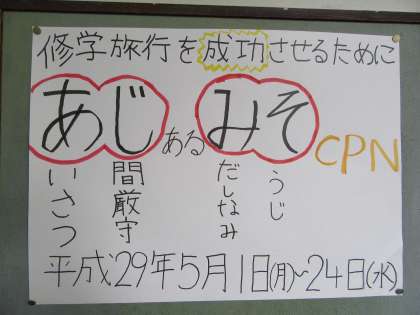 修学旅行を成功させるために
あじあるみそCPN
いさつ
間厳守
だしなみ
うじ
平成29年5月1日(月)~24日(水)